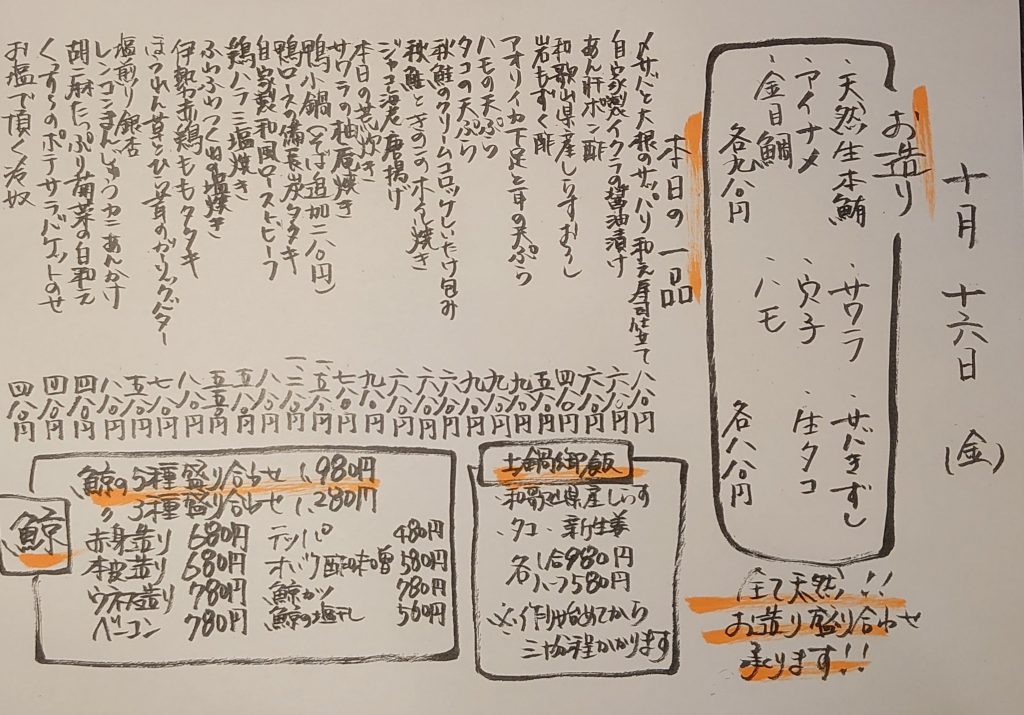 十月 十六日 (金)
お造り
・天然生本鮪 ・サワラ ・サバきずし
・アイナメ ・穴子 ・生タコ
・金目鯛 ・ハモ
各九八〇円 各八八〇円
全て天然!!
お造り盛り合わせ
承ります!!
本日の一品
〆サバと大根のサッパリ和え寿司仕立て 八八〇円
自家製イクラの醤油漬け 六八〇円
あん肝ポン酢 六八〇円
和歌山県産しらすおろし 四八〇円
岩もずく酢 五八〇円
アオリイカ下足と耳の天ぷら 九八〇円
ハモの天ぷら 九八〇円
タコの天ぷら 九八〇円
秋鮭のクリームコロッケしいたけ包み 六八〇円
秋鮭ときのこのホイル焼き 六八〇円
ジャコ海老唐揚げ 六八〇円
本日の荒炊き 九八〇円
サワラの柚庵焼き 七八〇円
鴨小鍋(そば追加二八〇円) 一、五八〇円
鴨ロースの備長炭タタキ 一、二八〇円
自家製和風ローストビーフ 八八〇円
鶏ハラミ塩焼き 五八〇円
ふわふわつくねの塩焼き 五五〇円
伊勢赤鶏ももタタキ 八八〇円
ほうれん草とひら茸のガーリックバター 七八〇円
塩煎り銀杏 五八〇円
レンコンまんじゅうカニあんかけ 八八〇円
胡麻たっぷり菊菜の白和え 四八〇円
くずし のポテサラバケットのせ 四八〇円
お塩で頂く 奴 四八〇円
土鍋御飯
・和歌山県産しらす
・タコ ・新生姜
各 1合980円
ハーフ580円
※作り始めてから
三十分程かかります
鯨
鯨の5種盛り合わせ 1,980円
〃 3種盛り合わせ 1,280円
赤身造り 680円 テッパ 480円
本皮造り 680円 オバケ酢味噌 580円
ウネス造り 780円 鯨カツ 780円
ベーコン 780円 鯨の塩干し 560円